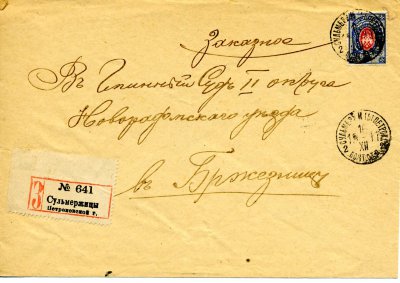 Заказное
Въ Гминный Судъ II округа
Новорадомскаго уѣзда
въ Бржезницѣ
З
№ 641
Сульмержицы
Петроковской г.